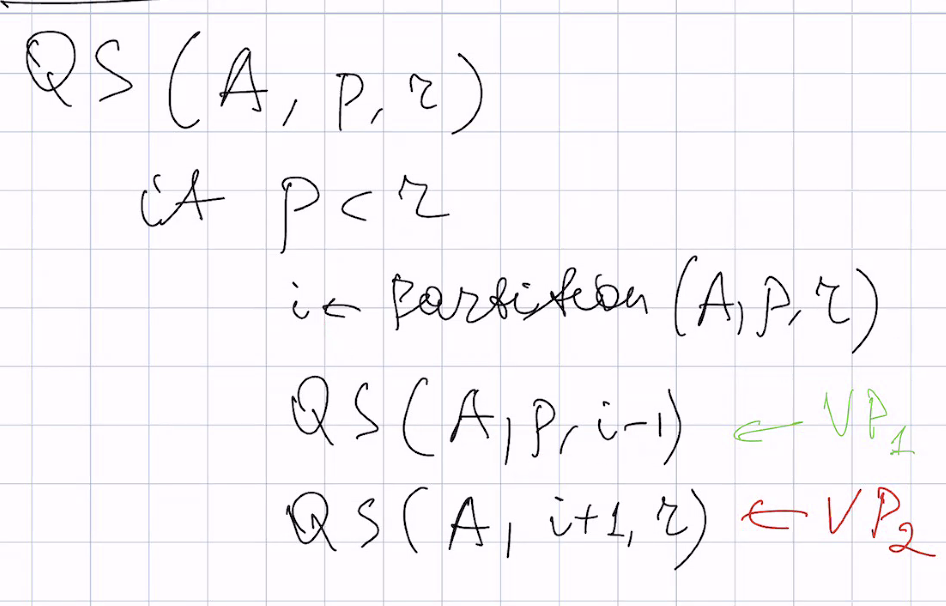 QS(A, p, r)
if p < r
i ← Partition (A, p, r)
QS(A, p, i-1) ← VP1
QS(A, i+1, r) ← VP2